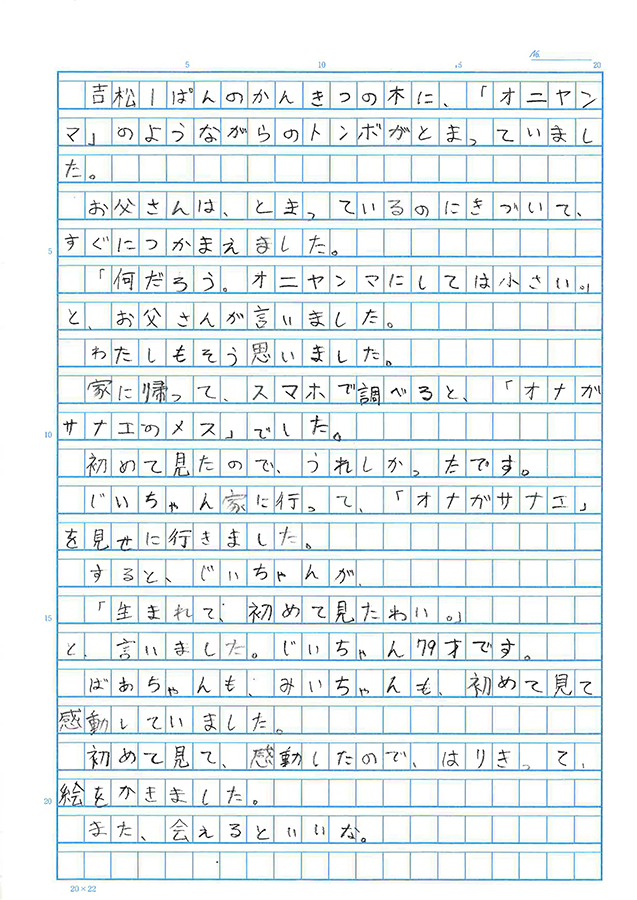 No.
5 10 15 20
吉松1ぱんのかんきつの木に、「オニヤン
マ」のようながらのトンボがとまっていまし
た。
お父さんは、とまっているのにきづいて、
5 すぐにつかまえました。
「何だろう。オニヤンマにしては小さい。」
と、お父さんが言いました。
わたしもそう思いました。
家に帰って、スマホで調べると、「オナガ
10 サナエのメス」でした。
初めて見たので、うれしかったです。
じいちゃん家に行って、「オナガサナエ」
を見せに行きました。
すると、じいちゃんが、
15 「生まれて、初めて見たわい。」
と、言いました。じいちゃん79才です。
ばあちゃんも、みいちゃんも、初めて見て
感動していました。
初めて見て、感動したので、はりきって、
20 絵をかきました。
また、会えるといいな。
20×22